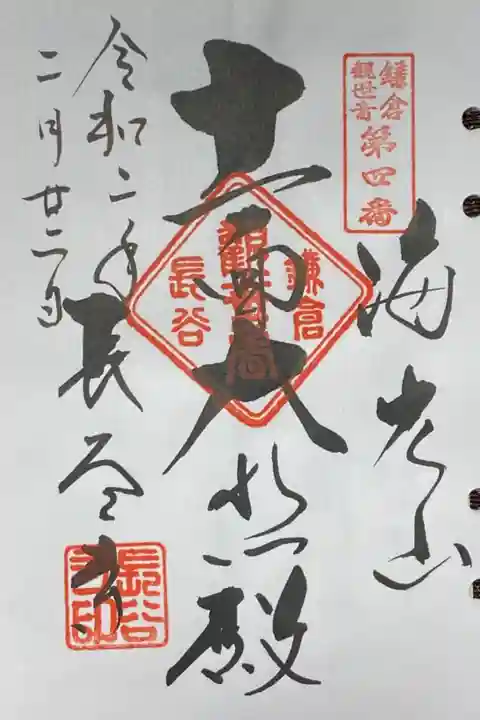 鎌倉
観世音
第四番
海光山
十一面大悲殿
鎌倉
観世音
長谷
長谷寺
長谷寺印
令和二年
二月廿二日